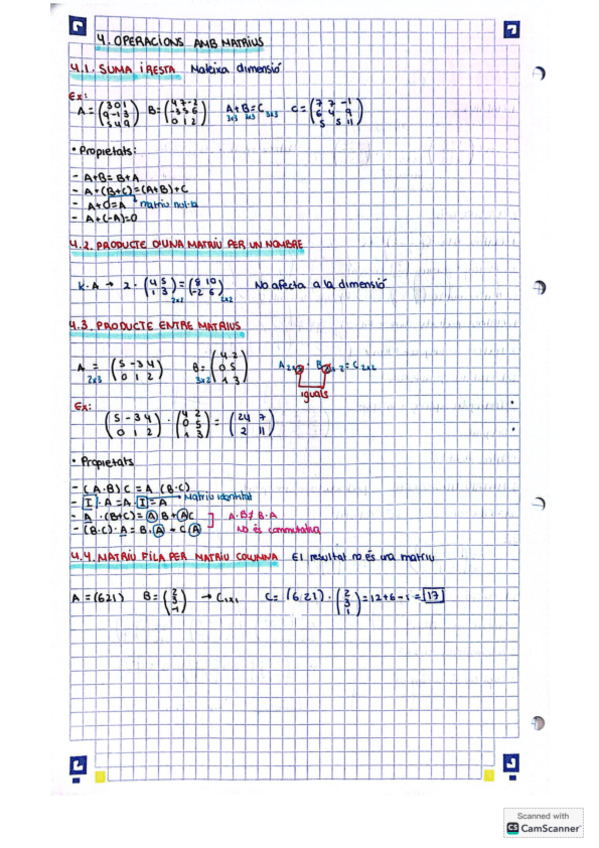 4. OPERACIONS AMB MATRIUS
4.1. SUMA i RESTA Mateixa dimensió
Ex:
A = (3 0 1 / 9 -1 3 / 5 4 9) B = (4 7 -2 / -3 5 6 / 0 1 2) A + B = C C = (7 7 -1 / 6 4 9 / 5 5 11)
3x3 3x3 3x3
• Propietats:
- A+B = B+A
- A+(B+C)=(A+B)+C
- A+0=A matriu nul·la
- A+(-A)=0
4.2. PRODUCTE D'UNA MATRIU PER UN NOMBRE
K·A → 2 · (4 5 / 1 3) = (8 10 / -2 6) No afecta a la dimensió
2x2 2x2
4.3. PRODUCTE ENTRE MATRIUS
A = (5 -3 4 / 0 1 2) B = (4 2 / 0 5 / 1 3) A 2x3 · B 3x2 = C 2x2
2x3 3x2
iguals
Ex:
(5 -3 4 / 0 1 2) · (4 2 / 0 5 / 1 3) = (24 7 / 2 11)
• Propietats
- (A·B) C = A (B·C)
- I · A = A · I = A Matriu identitat
- A · (B+C) = A B + A C A·B≠B·A
- (B·C) · A = B·A + C A No és commutativa
4.4. MATRIU FILA PER MATRIU COLUMNA El resultat no és una matriu
A = (6 2 1) B = (2 / 3 / -1) → C1x1 C = (6 2 1) · (2 / 3 / 1) = 12+6-1 = 17
Scanned with
CS CamScanner